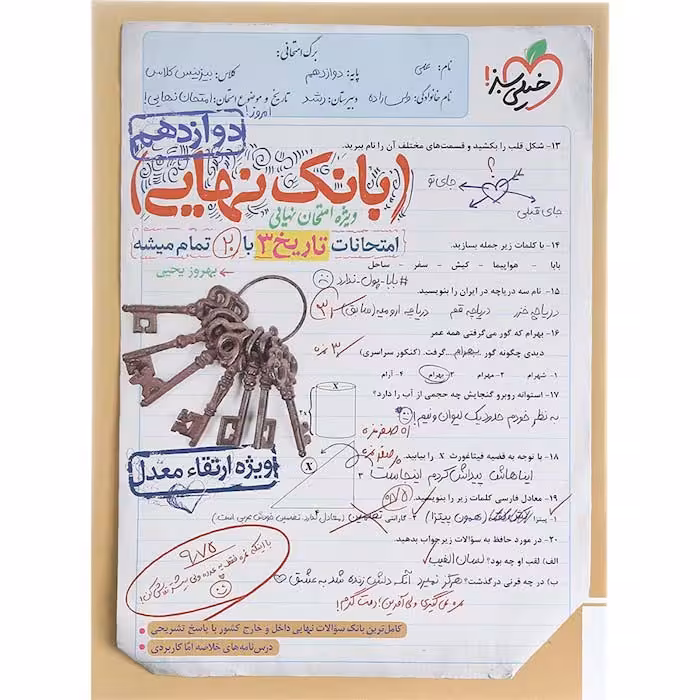 خیلی سبز!
برگ امتحانی:
نام: علی
پایه: دوازدهم
کلاس: بیزینس کلاس
نام خانوادگی:
دبیرستان: رشد
تاریخ و موضوع امتحان: امتحان نهایی!
امروز!
دوازدهم
(بانک نهایی)
ویژه امتحان نهایی
امتحانات تاریخ ۳ با ۲۰ تمام میشه
بهروز یحیی
ویژه ارتقاء معدل
۱۳- شکل قلب را بکشید و قسمت‌های مختلف آن را نام ببرید.
؟
جای تو
جای قبلی
۱۴- با کلمات زیر جمله بسازید.
بابا - هواپیما - کیش - سفر - ساحل
#بابا-پول-ندارد
۱۵- نام سه دریاچه در ایران را بنویسید.
دریاچه خزر دریاچه قم دریاچه ارومیه (سابق)
۱۶- بهرام که گور می‌گرفتی همه عمر
دیدی چگونه گور بهرام گرفت. (کنکور سراسری)
۱- شهرام ۲- مهرام ۳- بهرام ۴- آرام
۳ نمره
۱۷- استوانه روبرو گنجایش چه حجمی از آب را دارد؟
به نظر خودم حدود یک لیوان و نیم!
۱۸- با توجه به قضیه فیثاغورث X را بیابید.
ایناهاش پیداش کردم اینجاست
X
۳
۴
۱۹- معادل فارسی کلمات زیر را بنویسید.
۱- پیتزا (همون پیتزا) ۲- گارانتی تضمین
۲۰- در مورد حافظ به سؤالات زیر جواب بدهید.
الف) لقب او چه بود؟ لسان الغیب
ب) در چه قرنی درگذشت؟ هرگز نمیرد آنکه دلش زنده شد به عشق
۹/۷۵
کامل‌ترین بانک سؤالات نهایی داخل و خارج کشور با پاسخ تشریحی
درس‌نامه‌های خلاصه اما کاربردی